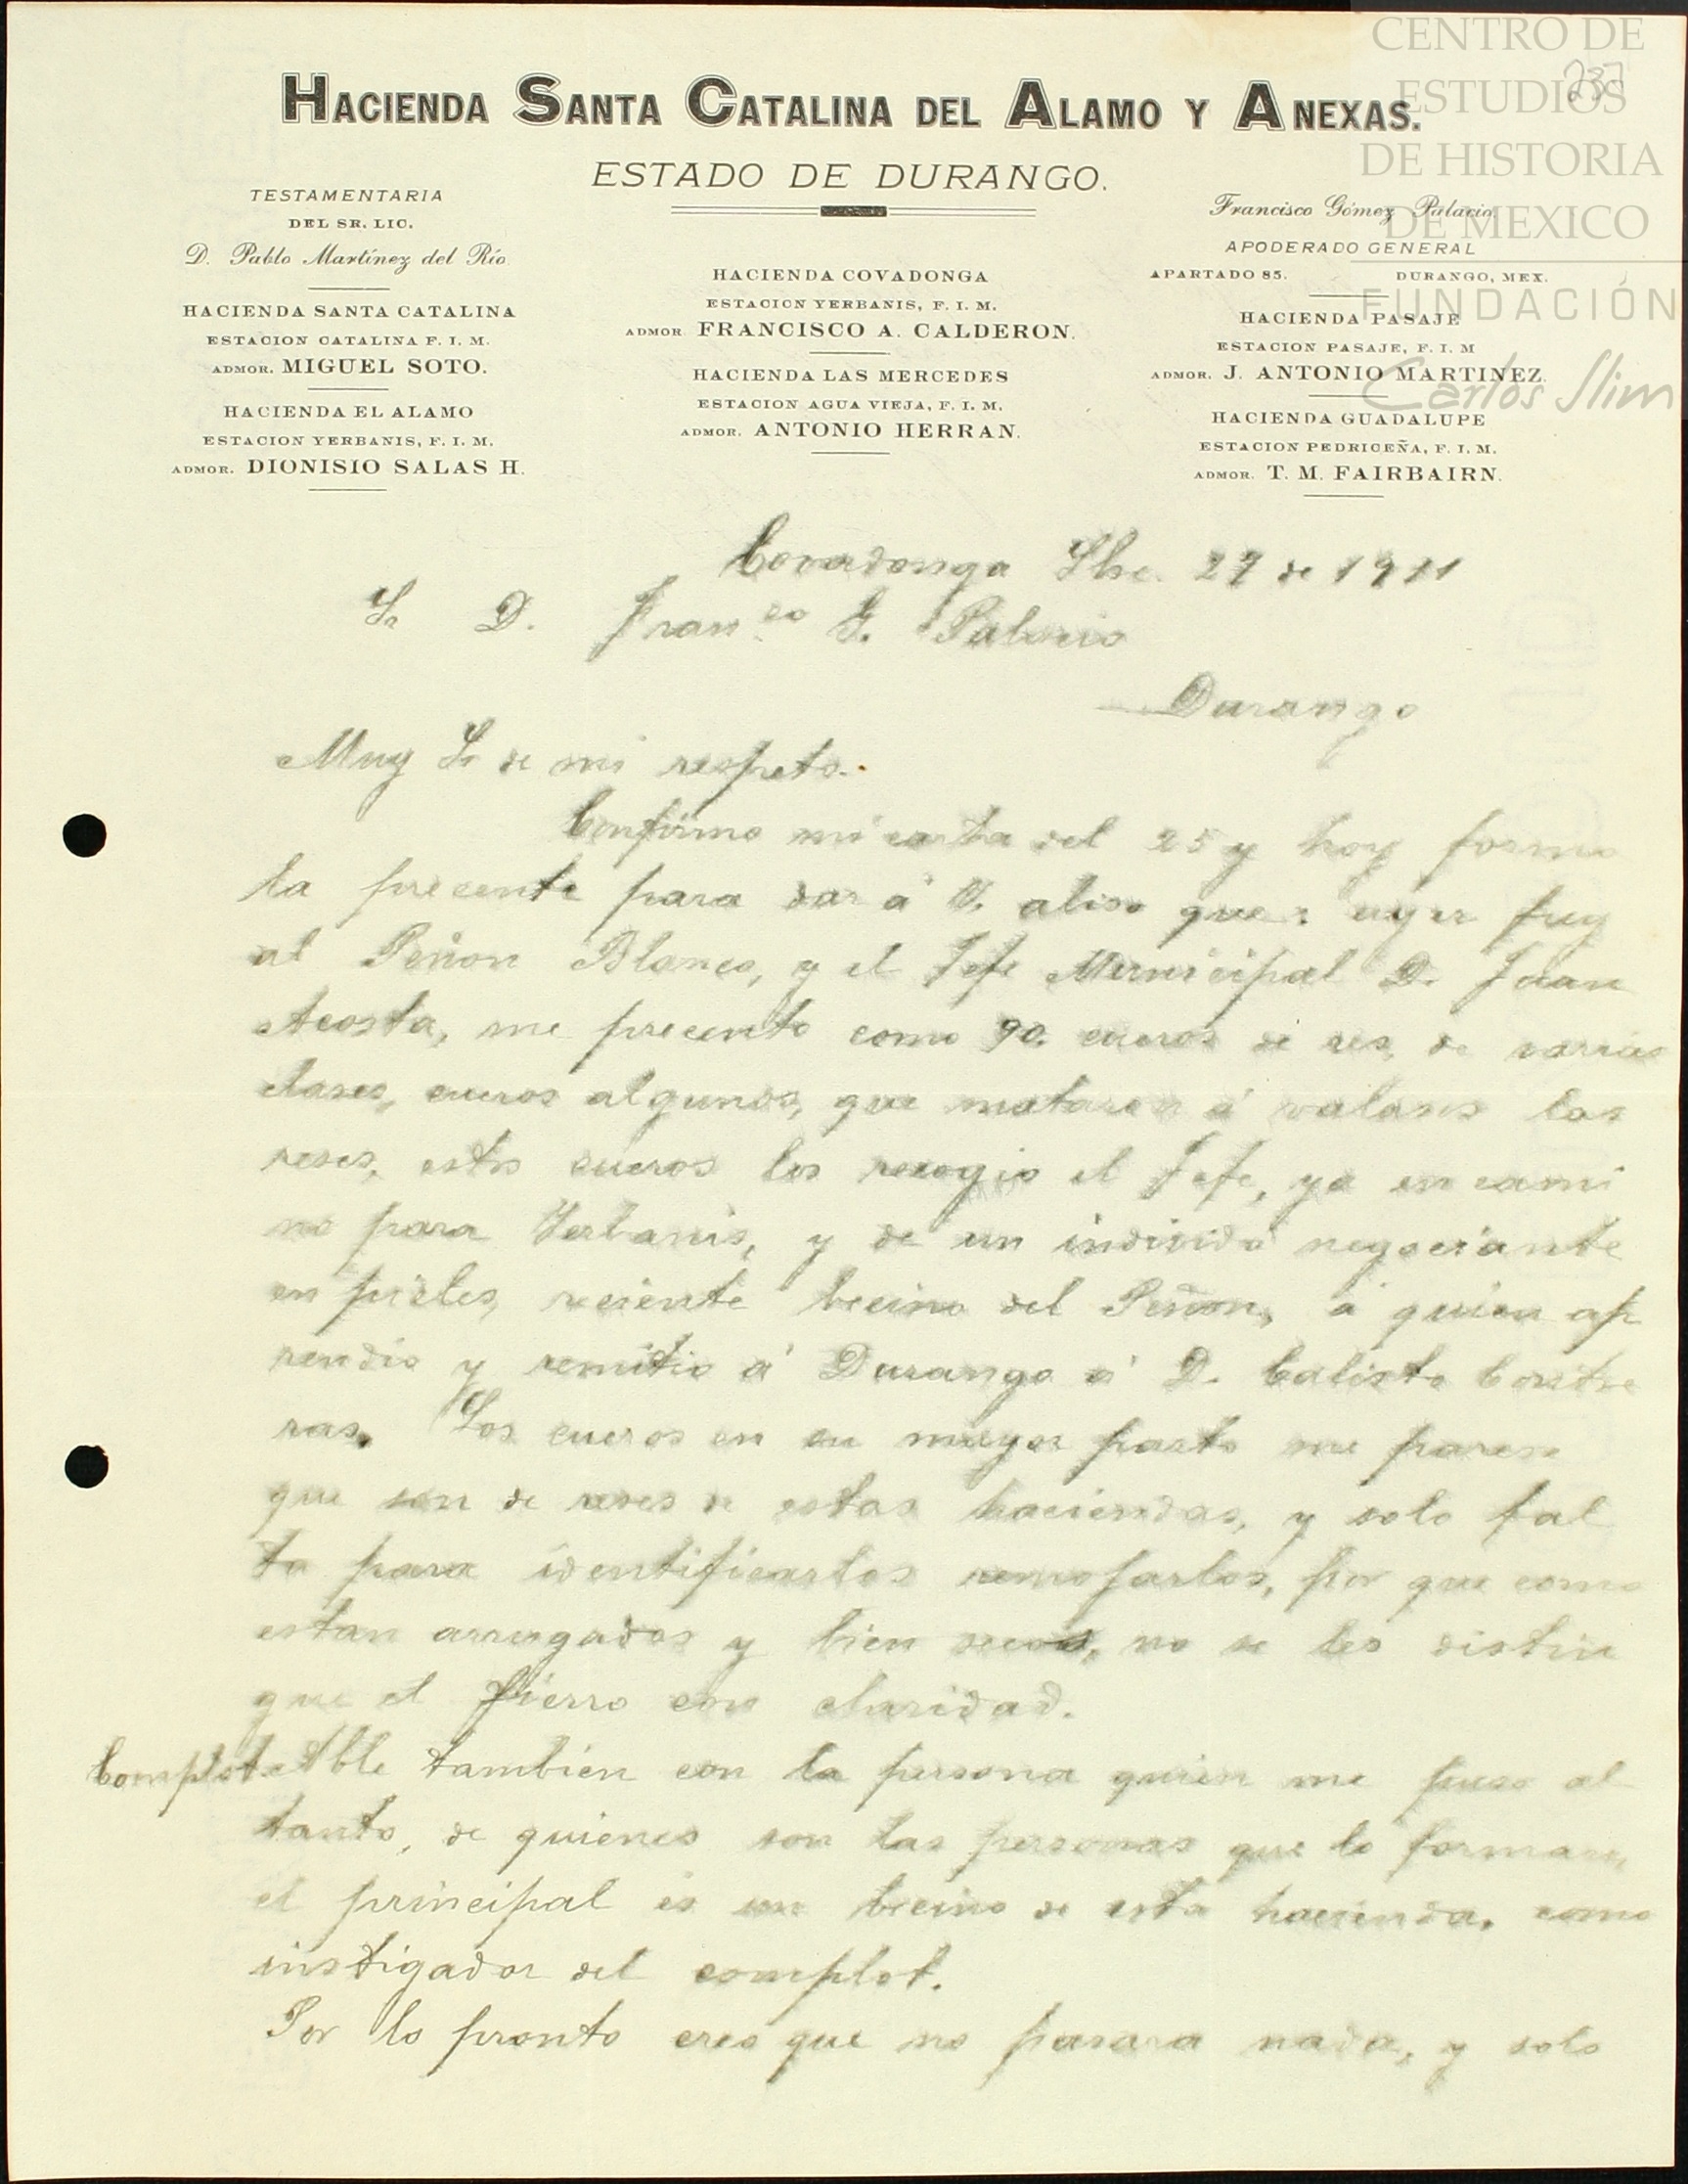 CENTRO DE
ESTUDIOS
DE HISTORIA
DE MEXICO
FUNDACIÓN
Carlos Slim
237
HACIENDA SANTA CATALINA DEL ALAMO Y ANEXAS.
ESTADO DE DURANGO.
TESTAMENTARIA
DEL SR. LIC.
D. Pablo Martínez del Río
HACIENDA SANTA CATALINA
ESTACION CATALINA F. I. M.
ADMOR. MIGUEL SOTO.
HACIENDA EL ALAMO
ESTACION YERBANIS, F. I. M.
ADMOR. DIONISIO SALAS H.
HACIENDA COVADONGA
ESTACION YERBANIS, F. I. M.
ADMOR. FRANCISCO A. CALDERON.
HACIENDA LAS MERCEDES
ESTACION AGUA VIEJA, F. I. M.
ADMOR. ANTONIO HERRAN.
Francisco Gómez Palacio.
APODERADO GENERAL
APARTADO 85. DURANGO, MEX.
HACIENDA PASAJE
ESTACION PASAJE, F. I. M
ADMOR. J. ANTONIO MARTINEZ.
HACIENDA GUADALUPE
ESTACION PEDRICEÑA, F. I. M.
ADMOR. T. M. FAIRBAIRN.
Covadonga 27 de 1911
Sr D. Franco G. Palacio
Durango
Muy Sr de mi respeto.
Confirmo mi carta del 25 y hoy formo
la precente para dar á V. abiso que ayer fuy
al Peñon Blanco, y el Jefe Municipal D. Juan
Acosta, me precento como 90. cueros de res, de varias
clases, cueros algunos, que mataron á valasos las
reses, estos cueros los recogio el Jefe, ya en cami
no para Yerbanis, y de un individo negociante
en pieles, reciente becino del Peñon, á quien ap
rendio y remitio á Durango á D. Calisto Contre
ras. Los cueros en su mayor parte me parese
que son de reses de estas haciendas, y solo fal
ta para identificarlos remojarlos, por que como
estan arrugados y bien secos, no se les distin
gue el fierro con claridad.
Complot. Able tambien con la persona quien me puso al
tanto, de quienes son las personas que lo forman,
el principal es un becino de esta hacienda, como
instigador del complot.
Por lo pronto creo que no pasara nada, y solo